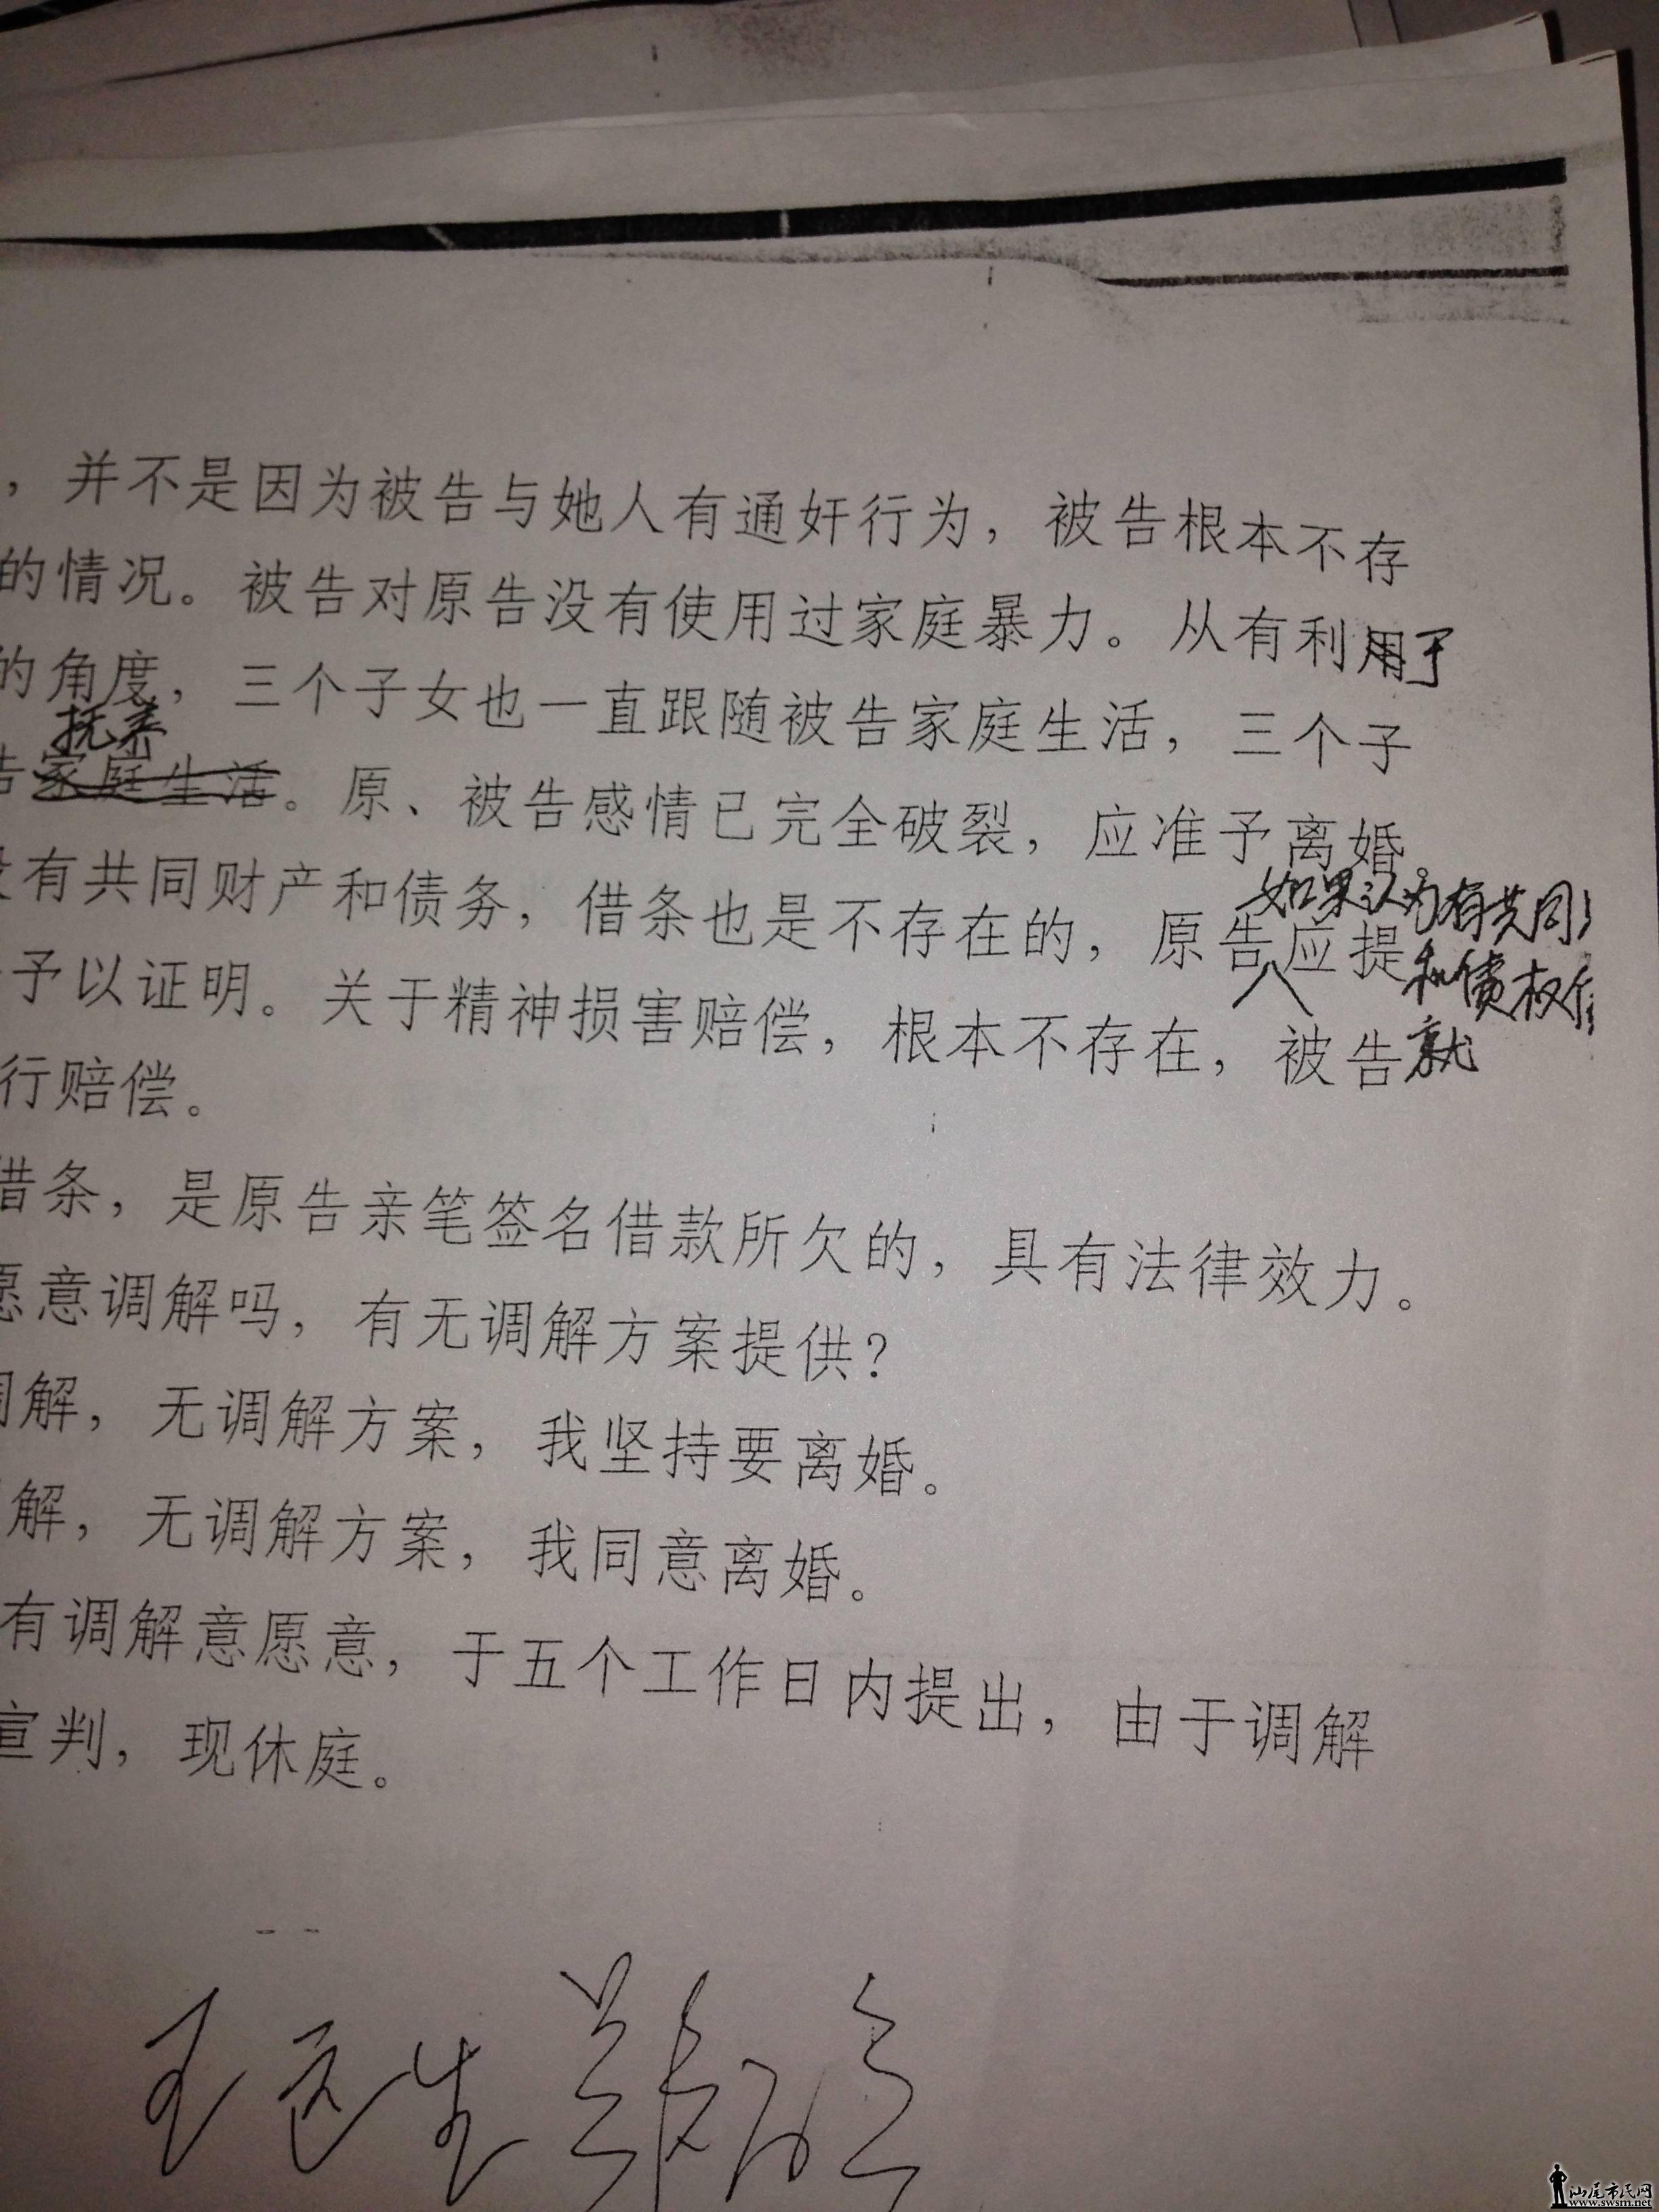 ，并不是因为被告与她人有通奸行为，被告根本不存
的情况。被告对原告没有使用过家庭暴力。从有利用于
的角度，三个子女也一直跟随被告家庭生活，三个子
抚养
告家庭生活。原、被告感情已完全破裂，应准予离婚。
如果认为有共同
没有共同财产和债务，借条也是不存在的，原告应提
和债权
予以证明。关于精神损害赔偿，根本不存在，被告就
行赔偿。
借条，是原告亲笔签名借款所欠的，具有法律效力。
愿意调解吗，有无调解方案提供？
调解，无调解方案，我坚持要离婚。
解，无调解方案，我同意离婚。
有调解意愿意，于五个工作日内提出，由于调解
宣判，现休庭。
汕尾市民网
www.swsm.net